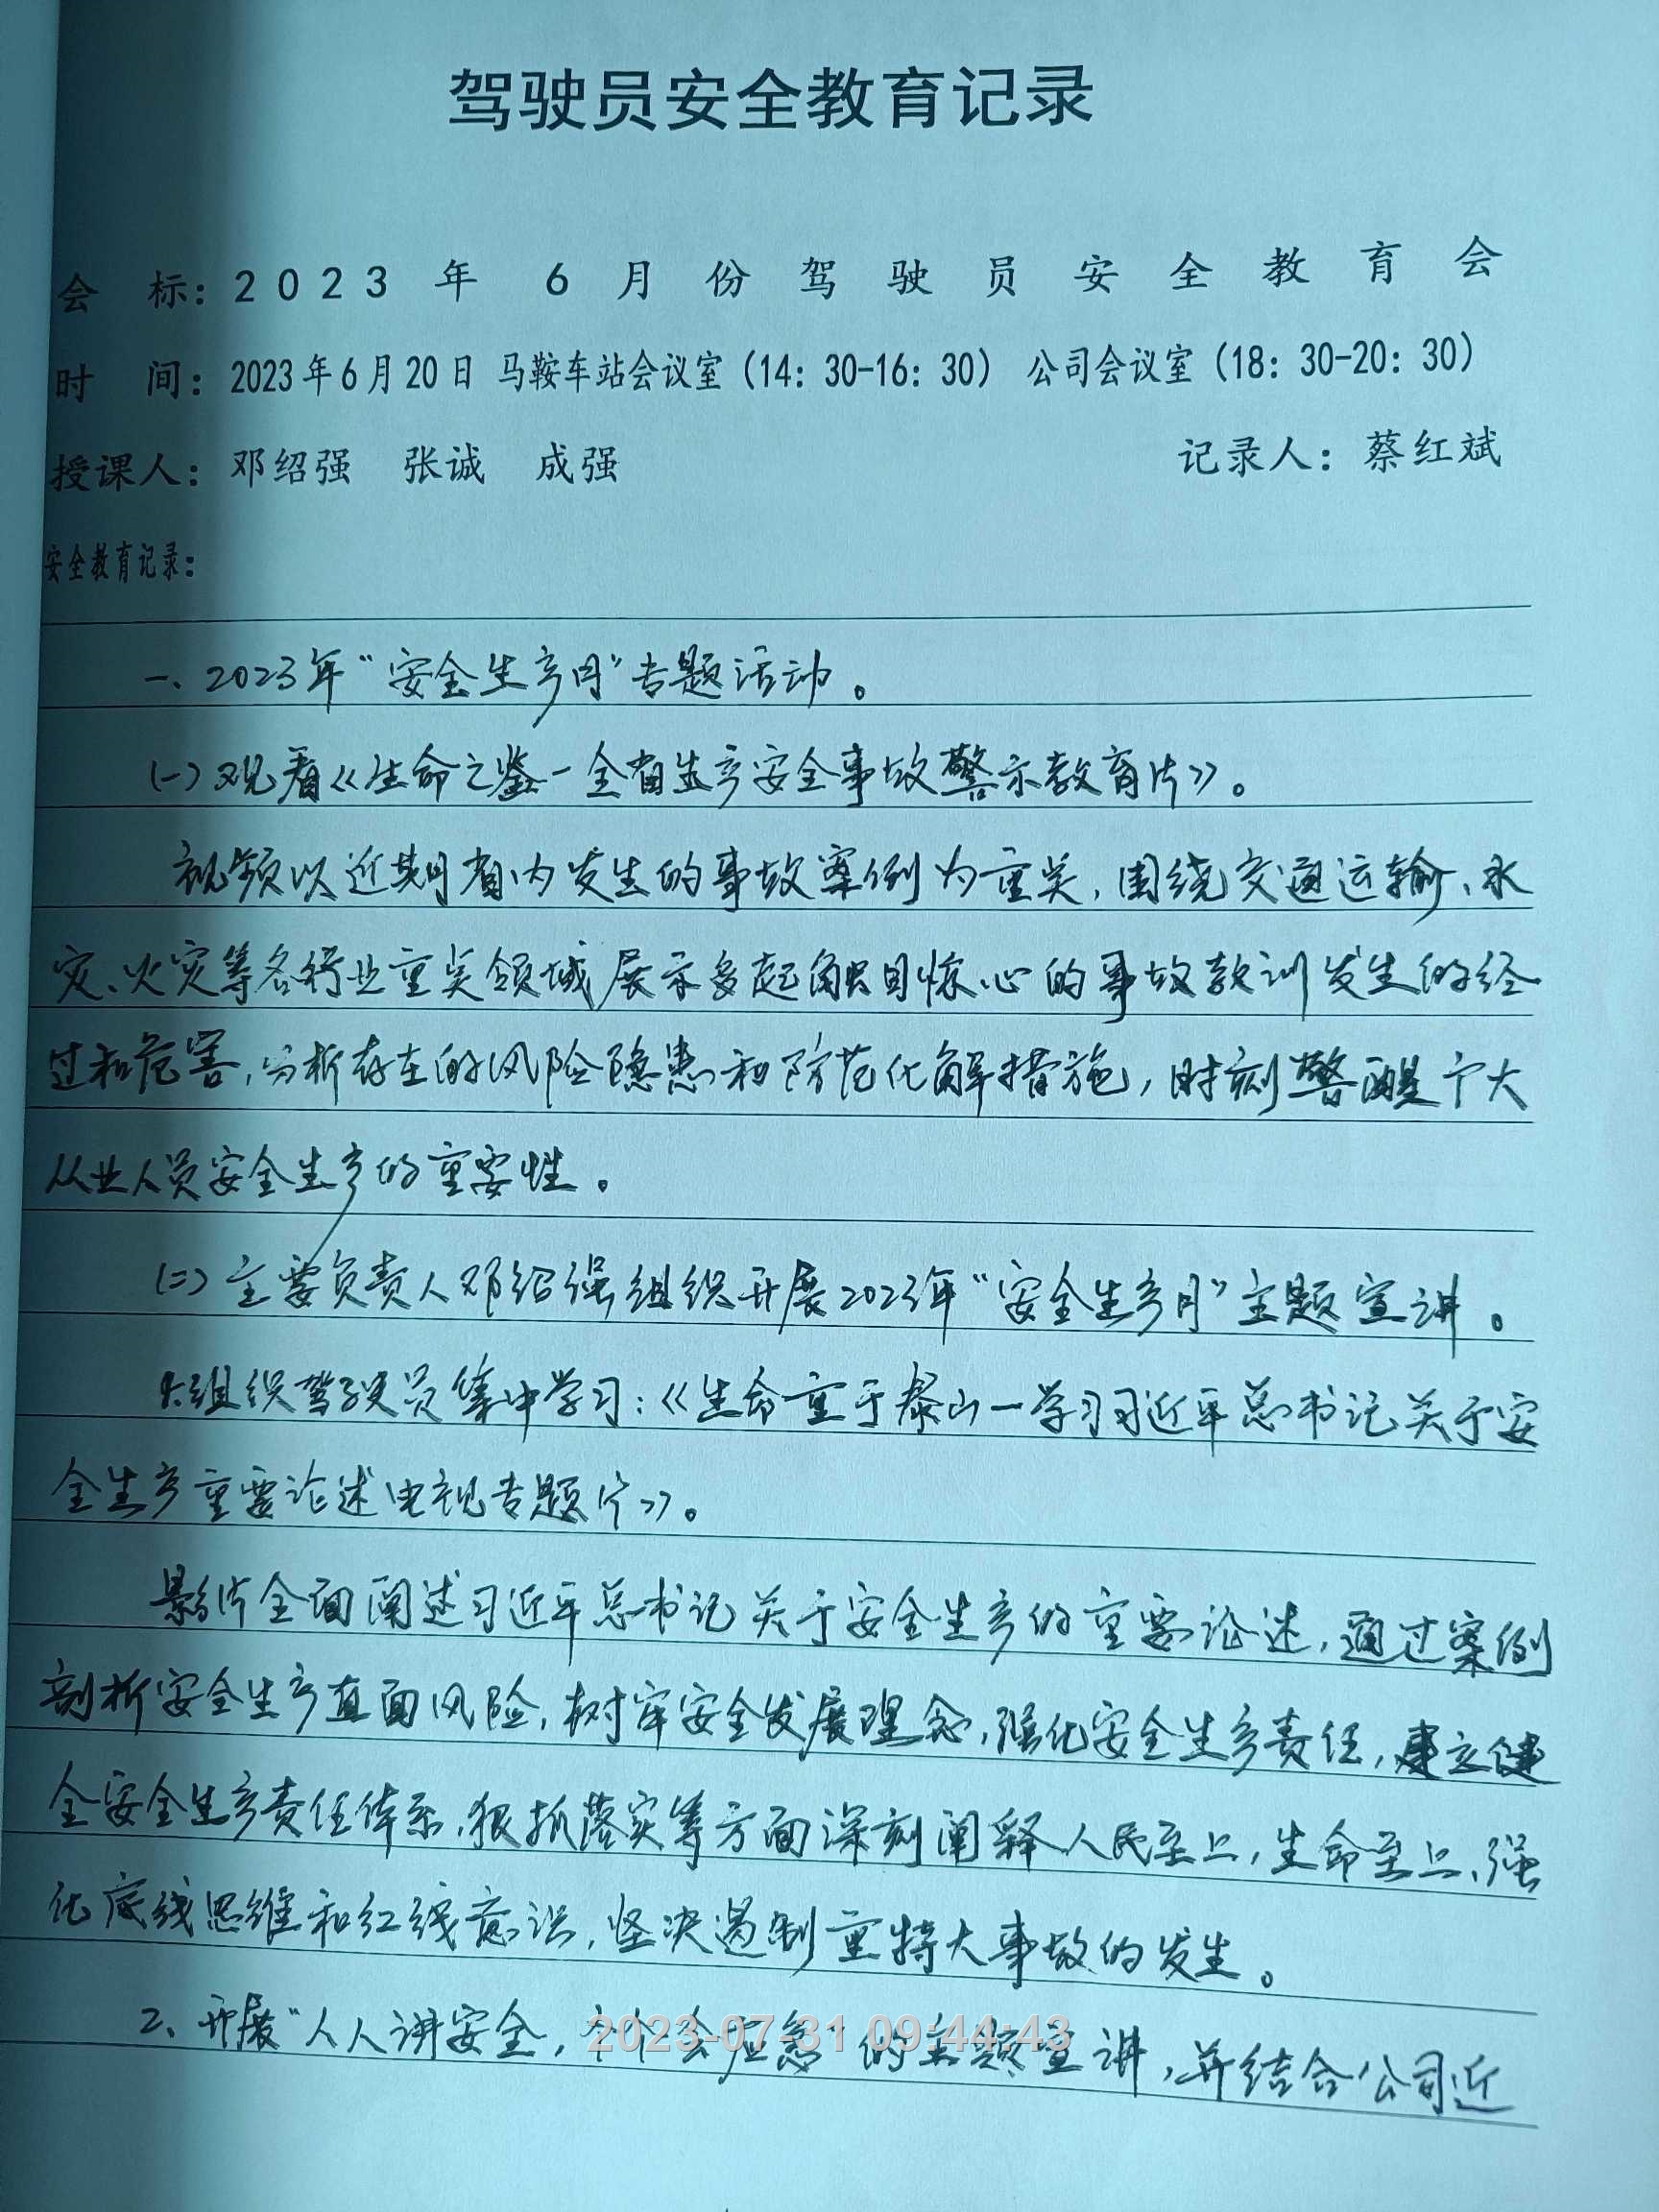 驾驶员安全教育记录
会 标：2023 年 6 月 份 驾 驶 员 安 全 教 育 会
时 间：2023年6月20日 马鞍车站会议室（14：30-16：30） 公司会议室（18：30-20：30）
授课人：邓绍强 张诚 成强 记录人：蔡红斌
安全教育记录：
一、2023年“安全生产月”专题活动。
(一)观看《生命之鉴-全省生产安全事故警示教育片》。
视频以近期省内发生的事故案例为重点，围绕交通运输、水
灾、火灾等各行业重点领域展示多起触目惊心的事故教训发生的经
过和危害，分析存在的风险隐患和防范化解措施，时刻警醒广大
从业人员安全生产的重要性。
(二)主要负责人邓绍强组织开展2023年“安全生产月”主题宣讲。
1.组织驾驶员集中学习：《生命重于泰山一学习习近平总书记关于安
全生产重要论述电视专题片》。
影片全面阐述习近平总书记关于安全生产的重要论述，通过案例
剖析安全生产直面风险，树牢安全发展理念，强化安全生产责任，建立健
全安全生产责任体系，狠抓落实等方面深刻阐释人民至上，生命至上，强
化底线思维和红线意识，坚决遏制重特大事故的发生。
2、开展“人人讲安全，个个会应急”的主题宣讲，并结合公司近
2023-07-31 09:44:43